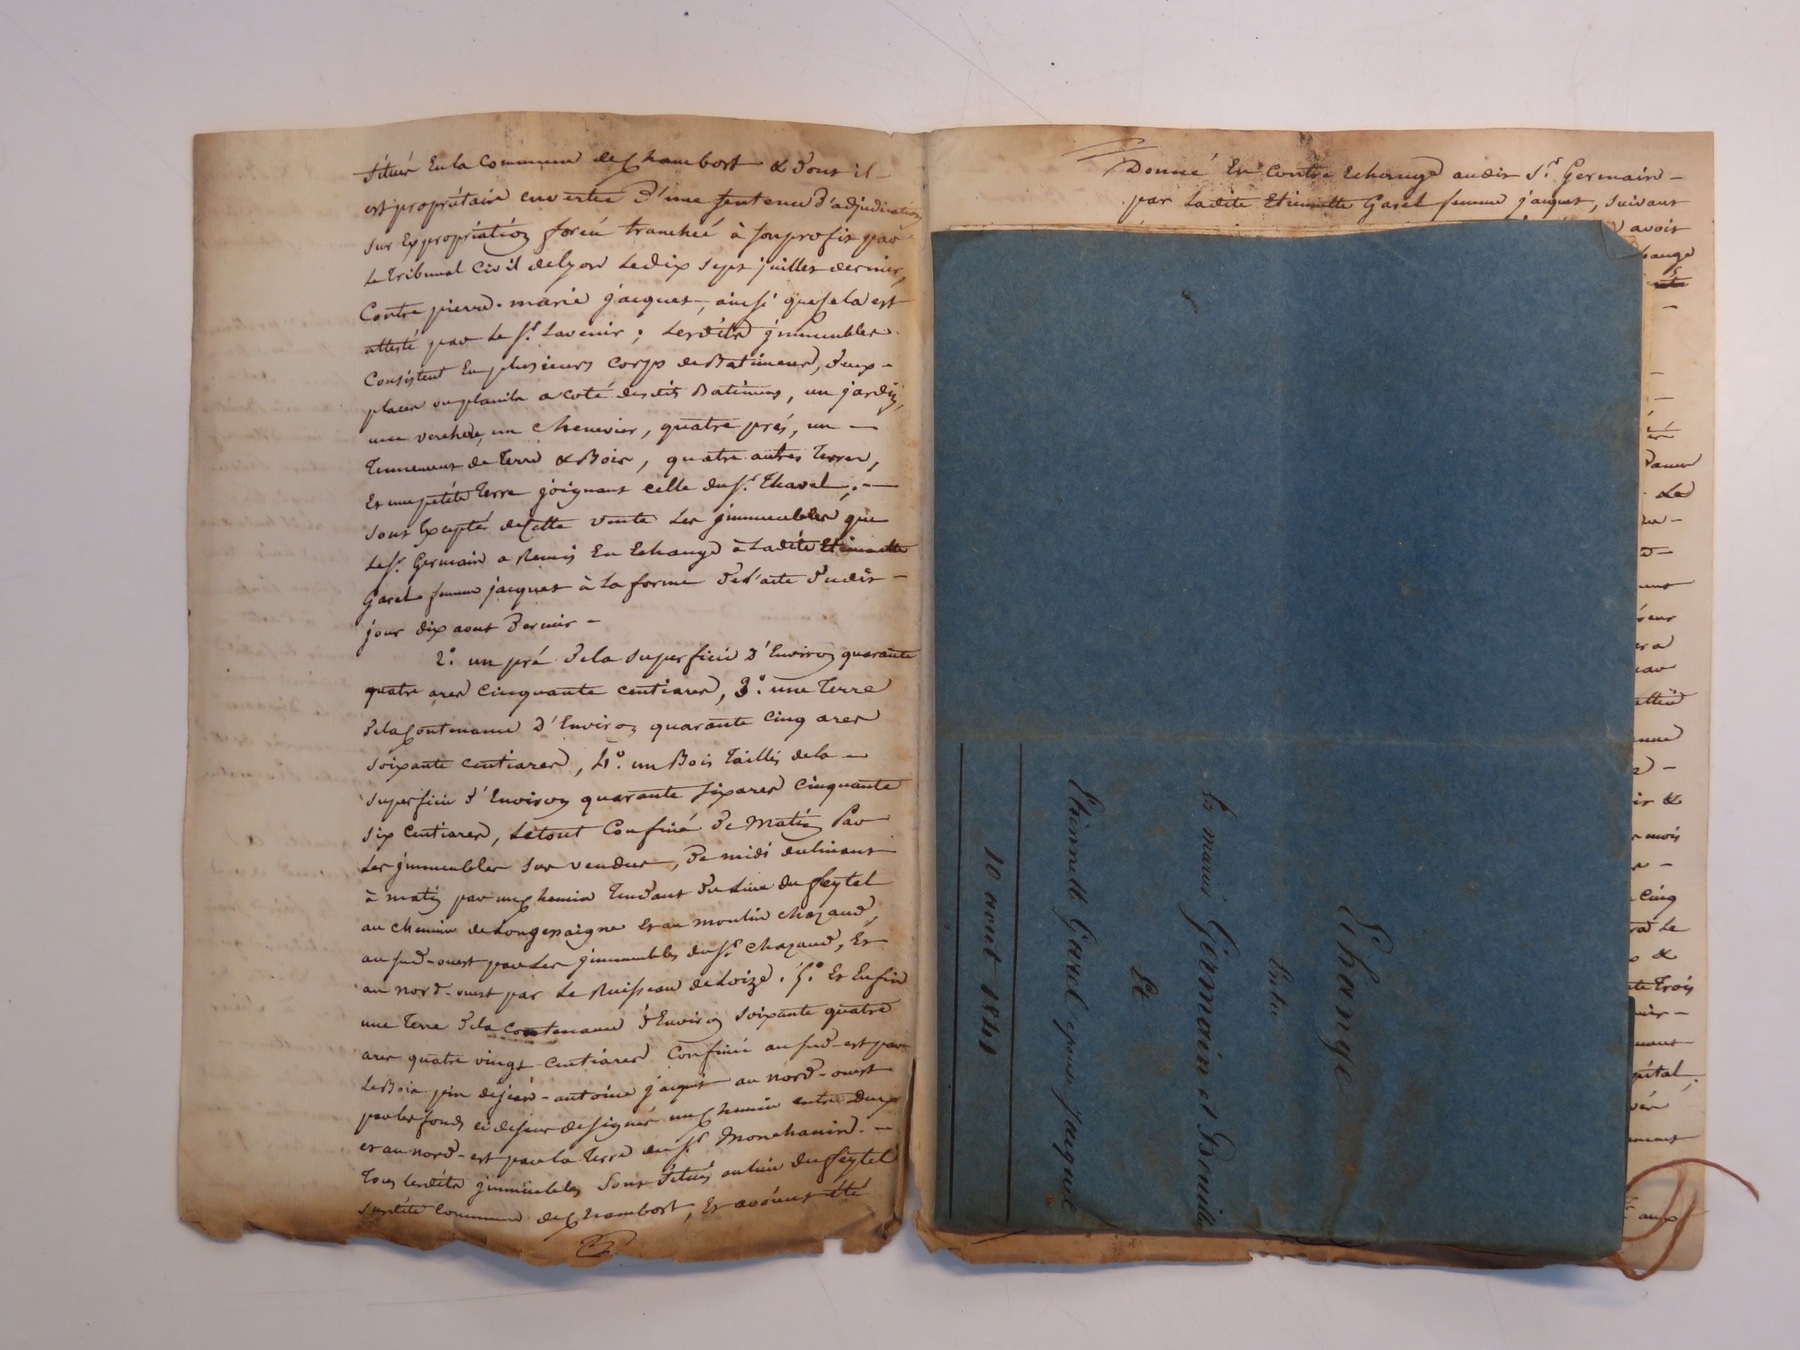 situés En la Commune de Chambost & dont il
est propriétaire en vertu d'une sentence d'adjudication
sur Expropriation forcée tranchée à son profit par
Le tribunal Civil de lyon Le dix sept juillet dernier,
Contre pierre-marie jacquet, ainsi que cela est
attesté par Le Sr. Lavenir; Lesdits jmmeubles
Consistent En plusieurs corps de Batimens, deux
places ou a coté desdits Batimens, un jardin,
une verchere, un chenevier, quatre prés, un
Tennement de Terre & Bois, quatre autres Terres,
Et une petite Terre joignant celle du Sr. Thaval;
sont Exceptés de Cette vente Les jmmeubles que
Le Sr. Germain a Remis En Echange à Ladite Etiennette
Garel femme jacquet à La forme de l'acte dudit
jour dix aout dernier
2°. un pré de la superficie d'Environ quarante
quatre ares cinquante centiares, 3°. une Terre
de la Contenance d'Environ quarante cinq ares
soixante centiares, 4°. un Bois Taillis de la
superficie d'Environ quarante six ares cinquante
six Centiares, Le tout Confiné de Matin Par
Les jmmeubles sus vendus, de midi
à matin par un Chemin Tendant du Lieu du feytel
au chemin de Longessaigne Et au moulin chazaud,
au sud-ouest par Les jmmeubles du Sr. chazaud, Et
au nord-ouest par Le Ruisseau de Loize. 5°. Et Enfin
une Terre de la Contenance d'Environ soixante quatre
ares quatre vingt Centiares Confinée au sud-est par
Le Bois pin de jean-antoine jacquet au nord-ouest
par les fonds ci dessus designés un Chemin entre deux
et au nord-est par la Terre du Sr. Monchanin.
Tous lesdits jmmeubles Sont situés au lieu du feytel
susdite Commune de Chambost, Et avoient été
Donné En Contre Echange audit Sr. Germain
par Ladite Etiennette Garel femme jacquet, suivant
avoir
mois
cinq
Le
&
Trois
aux
Echange
Entre
les mariés Germain et
Et
Etiennette Garel epouse Jacquet
10 aout 1841